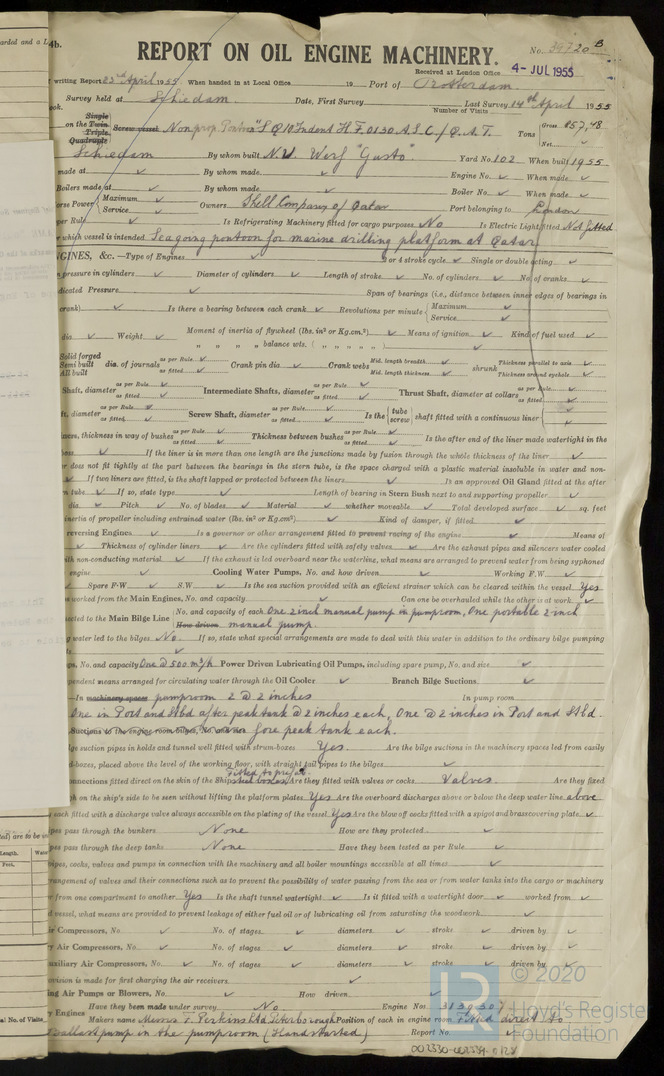 4b.
REPORT ON OIL ENGINE MACHINERY.
No. B
Received at London Office 4-JUL 1955
writing Report 23rd April 1955 When handed in at Local Office 19 Port of Rotterdam
Survey held at Schiedam Date, First Survey Last Survey 14th April 1955
Number of Visits
Single
on the Twin Triple Quadruple Screw vessel Nonprop. Pontoon Indent H.F. 0130 A.S.C./Q.A.T. Tons Gross 857,48
Net
Schiedam By whom built N.V. Werf "Gusto". Yard No. 102 When built 1955
made at By whom made Engine No. When made
Boilers made at By whom made Boiler No. When made
orse Power Maximum Service Owners Shell Company of Qatar Port belonging to London
er Rule Is Refrigerating Machinery fitted for cargo purposes No Is Electric Light fitted Not fitted
r which vessel is intended Seagoing pontoon for marine drilling platform at Qatar
NGINES, &c.—Type of Engines 2 or 4 stroke cycle Single or double acting
pressure in cylinders Diameter of cylinders Length of stroke No. of cylinders No. of cranks
dicated Pressure Span of bearings (i.e., distance between inner edges of bearings in
crank) Is there a bearing between each crank Revolutions per minute Maximum Service
dia Weight Moment of inertia of flywheel (lbs. in² or Kg.cm.²) Means of ignition Kind of fuel used
" " " balance wts. ( " " " " " )
Solid forged Semi built All built dia. of journals as per Rule as fitted Crank pin dia Crank webs Mid. length breadth Mid. length thickness shrunk Thickness parallel to axis Thickness around eyehole
Shaft, diameter as per Rule as fitted Intermediate Shafts, diameter as per Rule as fitted Thrust Shaft, diameter at collars as per Rule as fitted
ft, diameter as per Rule as fitted Screw Shaft, diameter as per Rule as fitted Is the tube screw shaft fitted with a continuous liner
ness, thickness in way of bushes as per Rule as fitted Thickness between bushes as per Rule as fitted Is the after end of the liner made watertight in the
boss If the liner is in more than one length are the junctions made by fusion through the whole thickness of the liner
r does not fit tightly at the part between the bearings in the stern tube, is the space charged with a plastic material insoluble in water and non-
If two liners are fitted, is the shaft lapped or protected between the liners Is an approved Oil Gland fitted at the after
n tube If so, state type Length of bearing in Stern Bush next to and supporting propeller
dia. Pitch No. of blades Material whether moveable Total developed surface sq. feet
inertia of propeller including entrained water (lbs. in² or Kg.cm.²) Kind of damper, if fitted
reversing Engines Is a governor or other arrangement fitted to prevent racing of the engine Means of
Thickness of cylinder liners Are the cylinders fitted with safety valves Are the exhaust pipes and silencers water cooled
with non-conducting material If the exhaust is led overboard near the waterline, what means are arranged to prevent water from being syphoned
engine Cooling Water Pumps, No. and how driven Working F.W.
Spare F.W. S.W. Is the sea suction provided with an efficient strainer which can be cleared within the vessel Yes
worked from the Main Engines, No. and capacity Can one be overhauled while the other is at work
ected to the Main Bilge Line No. and capacity of each One 2 inch manual pump in pumproom, One portable 2 inch
How driven manual pump.
g water led to the bilges No. If so, state what special arrangements are made to deal with this water in addition to the ordinary bilge pumping
ps, No. and capacity One @ 500 m³/h. Power Driven Lubricating Oil Pumps, including spare pump, No. and size
pendent means arranged for circulating water through the Oil Cooler Branch Bilge Suctions
—In machinery spaces pumproom 2 @ 2 inches In pump room
One in Port and Stbd after peak tank @ 2 inches each, One @ 2 inches in Port and Stbd.
fore peak tank each.
lge suction pipes in holds and tunnel well fitted with strum-boxes Yes. Are the bilge suctions in the machinery spaces led from easily
d-boxes, placed above the level of the working floor, with straight tail pipes to the bilges
onnections fitted direct on the skin of the Ship Are they fitted with valves or cocks Valves. Are they fixed
gh on the ship's side to be seen without lifting the platform plates Yes Are the overboard discharges above or below the deep water line above
s each fitted with a discharge valve always accessible on the plating of the vessel Yes Are the blow off cocks fitted with a spigot and brass covering plate
pes pass through the bunkers None How are they protected
pes pass through the deep tanks None Have they been tested as per Rule
pipes, cocks, valves and pumps in connection with the machinery and all boiler mountings accessible at all times
rangement of valves and their connections such as to prevent the possibility of water passing from the sea or from water tanks into the cargo or machinery
r from one compartment to another Yes Is the shaft tunnel watertight Is it fitted with a watertight door worked from
d vessel, what means are provided to prevent leakage of either fuel oil or of lubricating oil from saturating the woodwork
ir Compressors, No. No. of stages diameters stroke driven by
y Air Compressors, No. No. of stages diameters stroke driven by
uxiliary Air Compressors, No. No. of stages diameters stroke driven by
ovision is made for first charging the air receivers
ing Air Pumps or Blowers, No. How driven
Have they been made under survey No. Engine Nos. 3139307
y Engines Makers name Messrs F. Perkins Ltd, Peterborough Position of each in engine room Fitted direct to
Ballast pump in the pumproom (Handstarted) Report No.
© 2020
Lloyd's Register
Foundation
002330-002334-0128